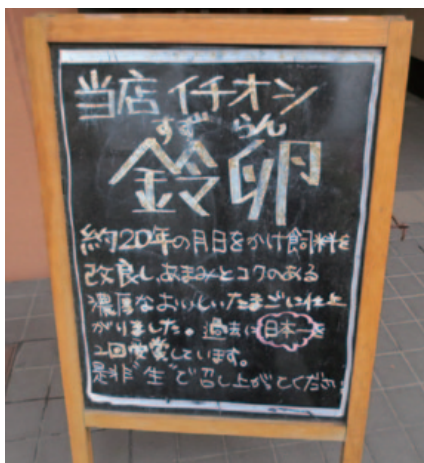 当店イチオシ
すず らん
鈴卵
約20年の月日をかけ飼料を
改良し、あまみとコクのある
濃厚なおいしいたまごに仕上
がりました。過去に日本一を
2回受賞しています。
是非"生"で召し上がてください